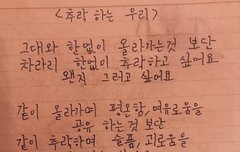 <추락 하는 우리>
그대와 한없이 올라가는것 보단
차라리 한없이 추락하고 싶어요
왠지 그러고 싶어요
같이 올라가며 평온함, 여유로움을
공유 하는것 보단
같이 추락하며 슬픔, 괴로움을